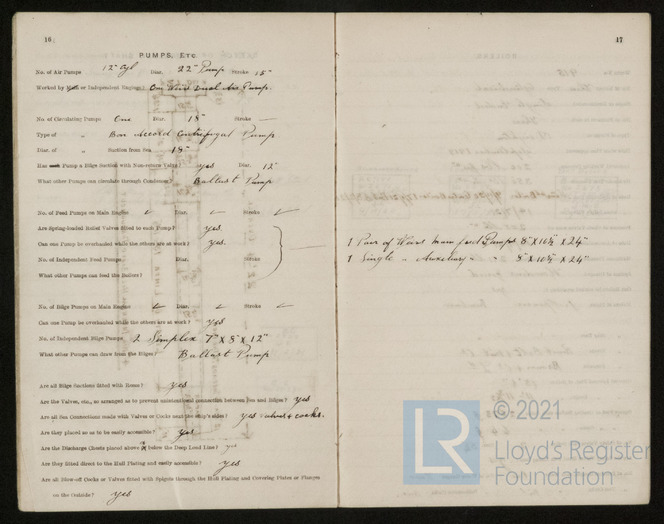 16
PUMPS, ETC.
No. of Air Pumps 12" Cyl Diar. 22" Pump Stroke 15"
Worked by Main or Independent Engines? One Weirs Dual Air Pump.
No. of Circulating Pumps One Diar. 18" Stroke —
Type of „ Bon Accord Centrifugal Pump
Diar. of „ Suction from Sea 18"
Has each Pump a Bilge Suction with Non-return Valve? yes Diar. 12"
What other Pumps can circulate through Condenser? Ballast Pump
No. of Feed Pumps on Main Engine ✓ Diar. ✓ Stroke ✓
Are Spring-loaded Relief Valves fitted to each Pump? yes.
Can one Pump be overhauled while the others are at work? yes.
No. of Independent Feed Pumps Diar. Stroke
What other Pumps can feed the Boilers?
No. of Bilge Pumps on Main Engine ✓ Diar. ✓ Stroke ✓
Can one Pump be overhauled while the others are at work? yes
No. of Independent Bilge Pumps 2 Simplex 7" X 8" X 12"
What other Pumps can draw from the Bilges? Ballast Pump
Are all Bilge Suctions fitted with Roses? yes
Are the Valves, etc., so arranged as to prevent unintentional connection between Sea and Bilges? yes
Are all Sea Connections made with Valves or Cocks next the ship's sides? yes valves & cocks.
Are they placed so as to be easily accessible? yes.
Are the Discharge Chests placed above or below the Deep Load Line? yes
Are they fitted direct to the Hull Plating and easily accessible? yes
Are all Blow-off Cocks or Valves fitted with Spigots through the Hull Plating and Covering Plates or Flanges
on the Outside? yes
17
1 Pair of Weirs Main feed Pumps 8" X 10½" X 24"
1 Single „ Auxiliary „ „ 8" X 10½" X 24"
© 2021
LR
Lloyd's Register
Foundation